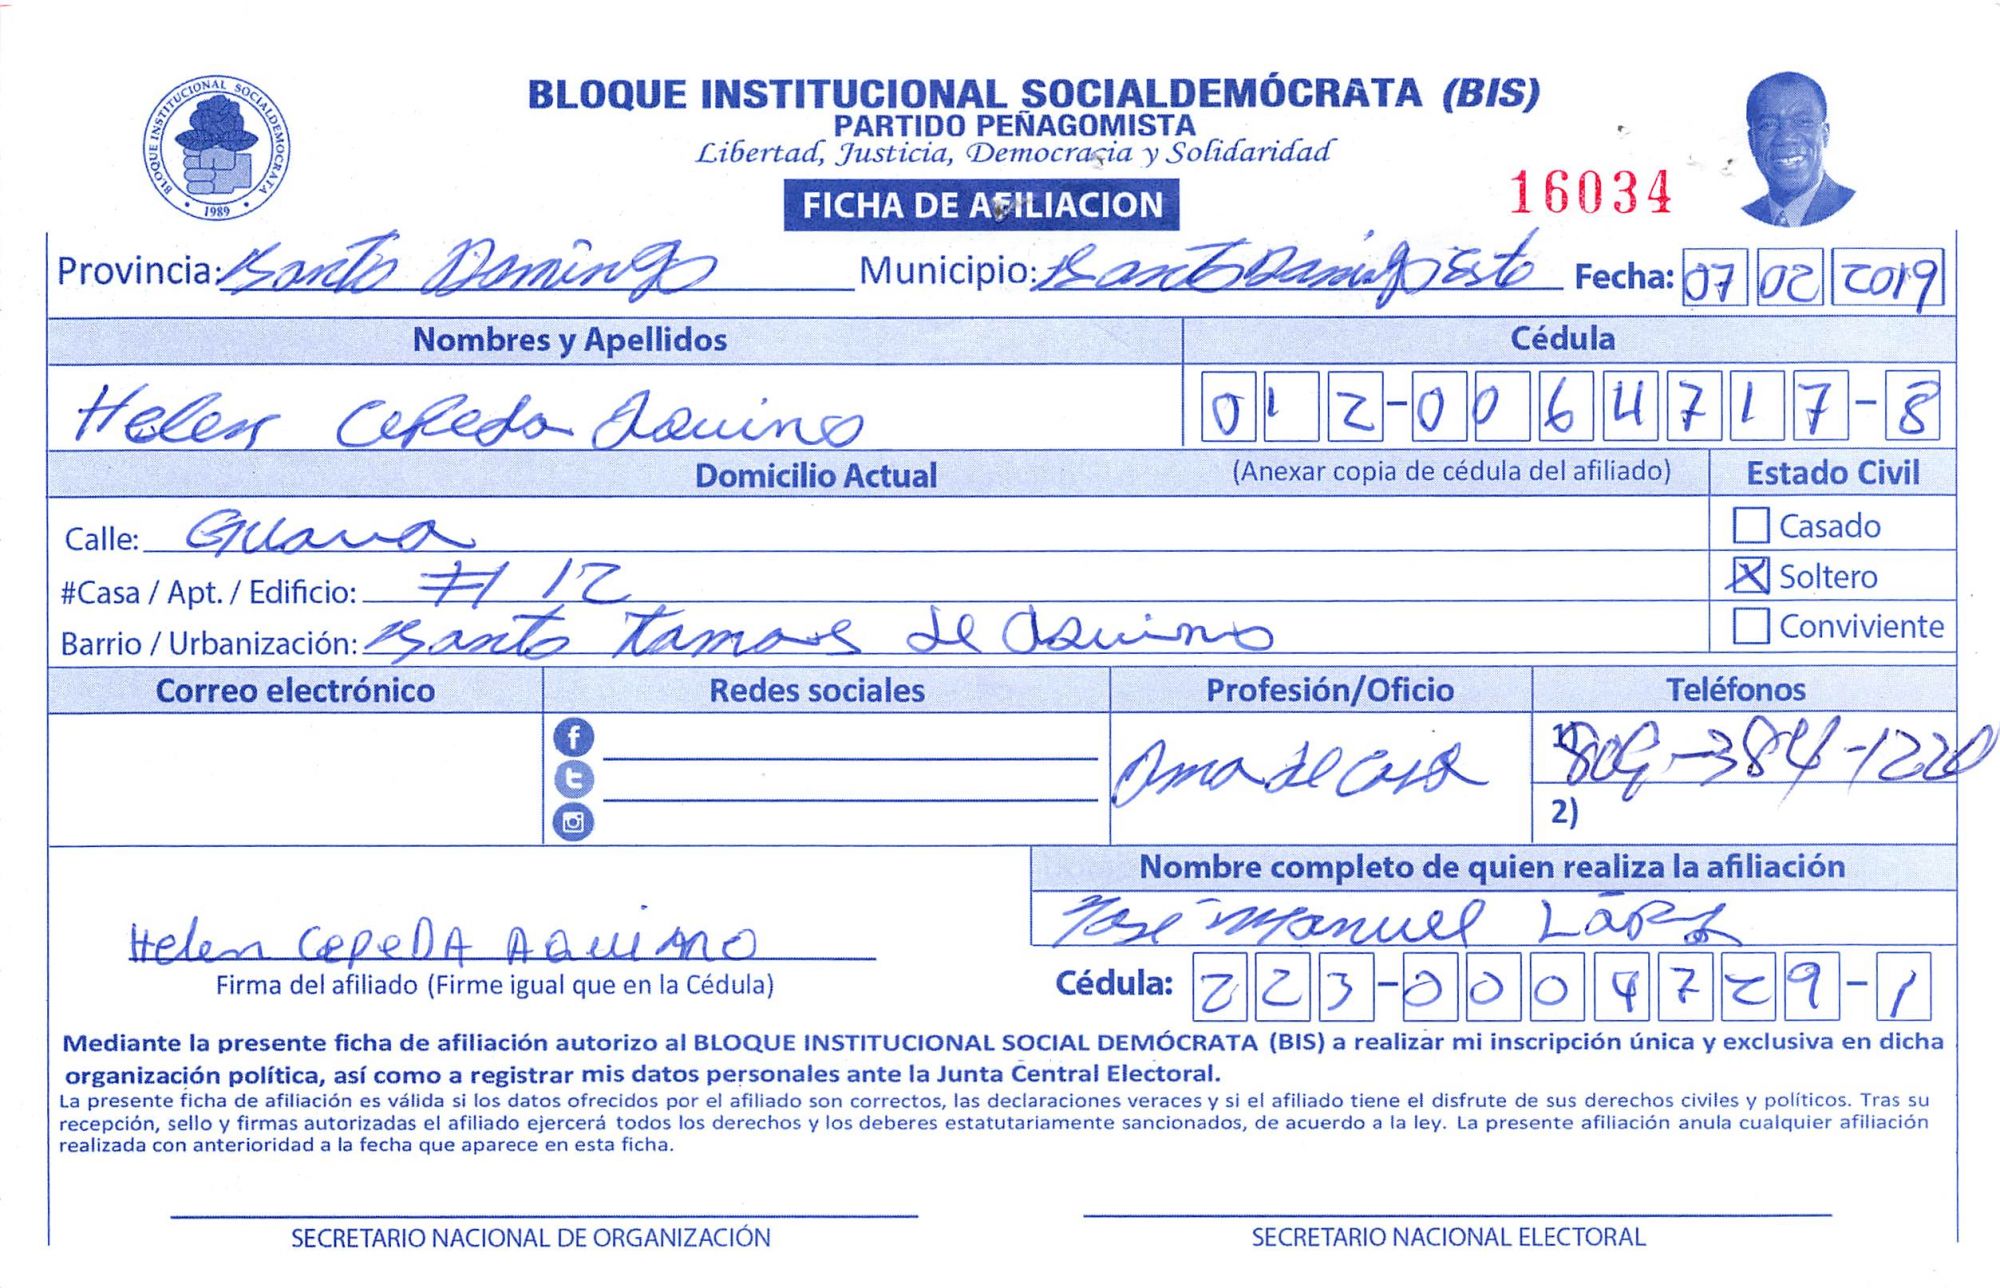 BLOQUE INSTITUCIONAL SOCIALDEMÓCRATA (BIS)
PARTIDO PEÑAGOMISTA
Libertad, Justicia, Democracia y Solidaridad
BLOQUE INSTITUCIONAL SOCIALDEMOCRATA
1989
FICHA DE AFILIACION
16034
Provincia: Santo Domingo Municipio: Santo Domingo Este Fecha: 07 02 2019
Nombres y Apellidos Cédula
Helen Cepeda Aquino 012-0064717-8
Domicilio Actual (Anexar copia de cédula del afiliado) Estado Civil
Calle:
Casado
#Casa / Apt. / Edificio: # 12
Soltero
Barrio / Urbanización: Santo Tomas de Aquino
Conviviente
Correo electrónico Redes sociales Profesión/Oficio Teléfonos
Ama de casa 1) 809-384-1220
2)
Nombre completo de quien realiza la afiliación
Jose Manuel Lara
Helen CepeDA AQuiNO
Firma del afiliado (Firme igual que en la Cédula)
Cédula: 223-0004729-1
Mediante la presente ficha de afiliación autorizo al BLOQUE INSTITUCIONAL SOCIAL DEMÓCRATA (BIS) a realizar mi inscripción única y exclusiva en dicha
organización política, así como a registrar mis datos personales ante la Junta Central Electoral.
La presente ficha de afiliación es válida si los datos ofrecidos por el afiliado son correctos, las declaraciones veraces y si el afiliado tiene el disfrute de sus derechos civiles y políticos. Tras su
recepción, sello y firmas autorizadas el afiliado ejercerá todos los derechos y los deberes estatutariamente sancionados, de acuerdo a la ley. La presente afiliación anula cualquier afiliación
realizada con anterioridad a la fecha que aparece en esta ficha.
SECRETARIO NACIONAL DE ORGANIZACIÓN SECRETARIO NACIONAL ELECTORAL